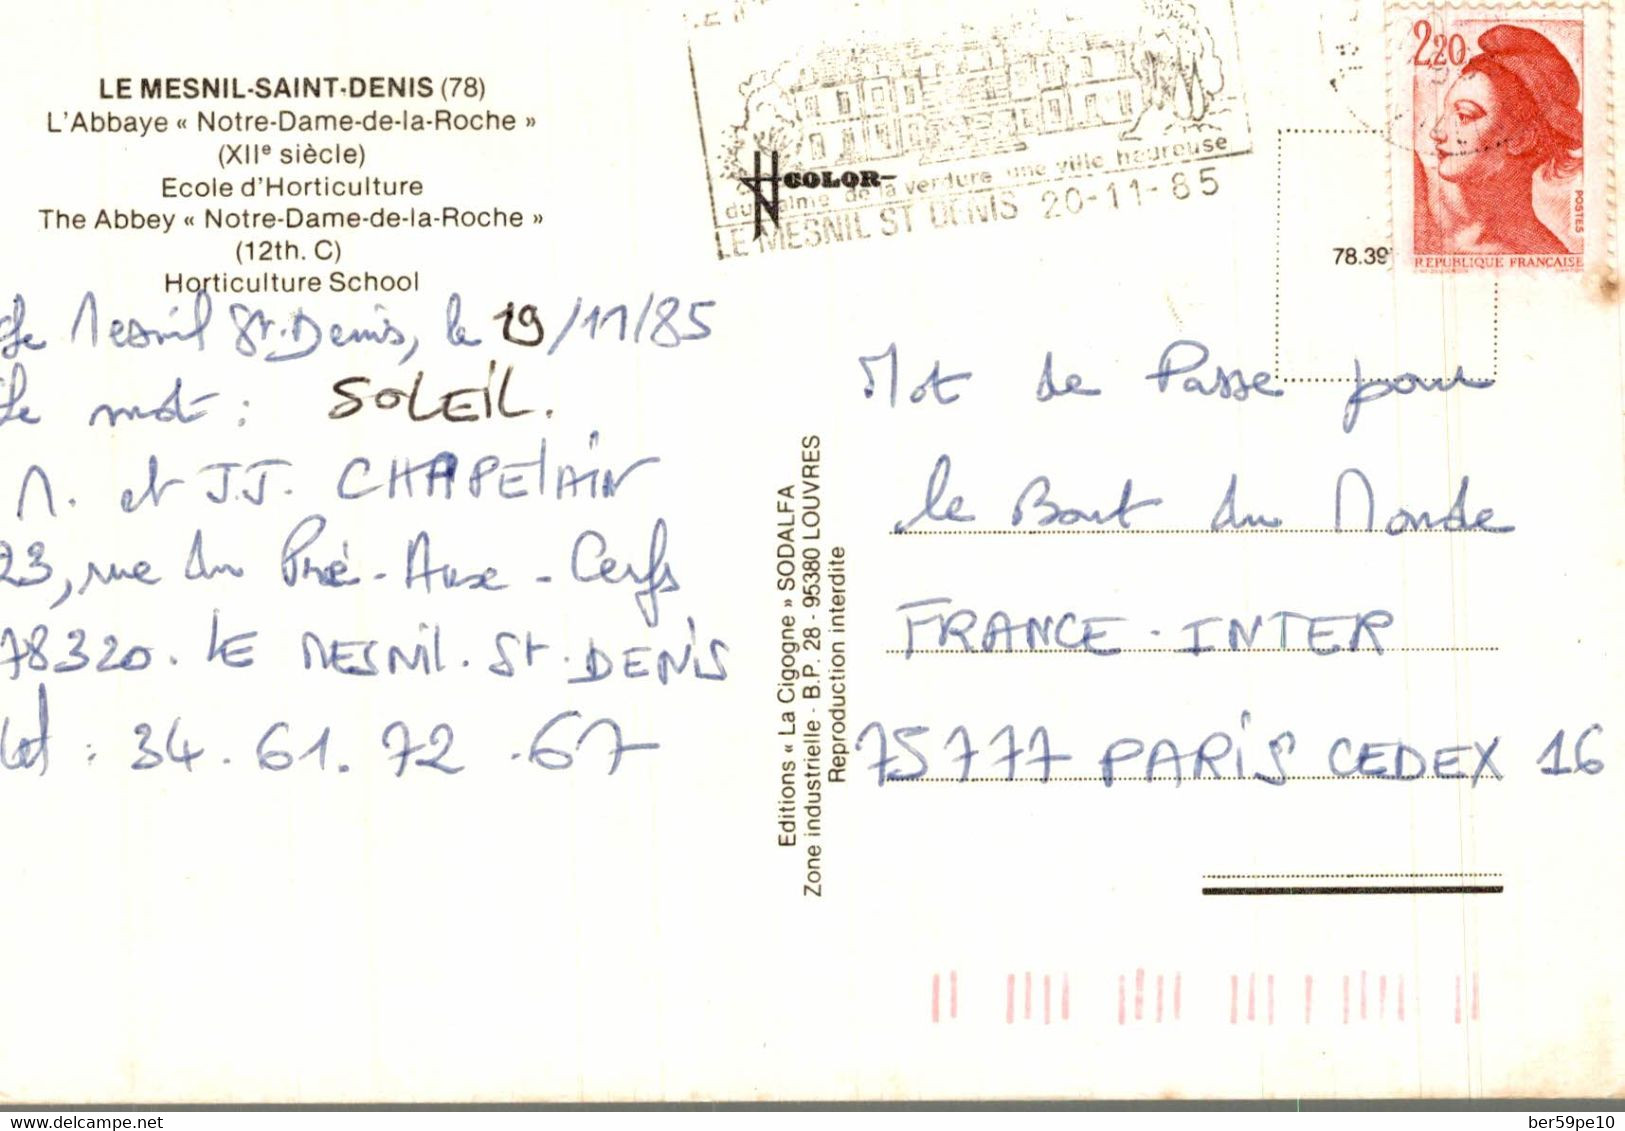 LE MESNIL-SAINT-DENIS (78)
L'Abbaye « Notre-Dame-de-la-Roche »
(XIIe siècle)
Ecole d'Horticulture
The Abbey « Notre-Dame-de-la-Roche »
(12th. C)
Horticulture School
COLOR
du calme de la verdure une ville heureuse
LE MESNIL ST DENIS 20-11-85
2,20
POSTES
REPUBLIQUE FRANÇAISE
78.39
Le Mesnil St-Denis, le 19/11/85
Le mot : SOLEIL.
M. et J.J. CHAPELAIN
23, rue du Pré-Aux-Cerfs
78320. LE MESNIL-St-DENIS
tel : 34.61.72.67
Editions « La Cigogne » SODALFA
Zone industrielle - B.P. 28 - 95380 LOUVRES
Reproduction interdite
Mot de Passe pour
le Bout du Monde
FRANCE-INTER
75777 PARIS CEDEX 16
delcampe.net
ber59pe10